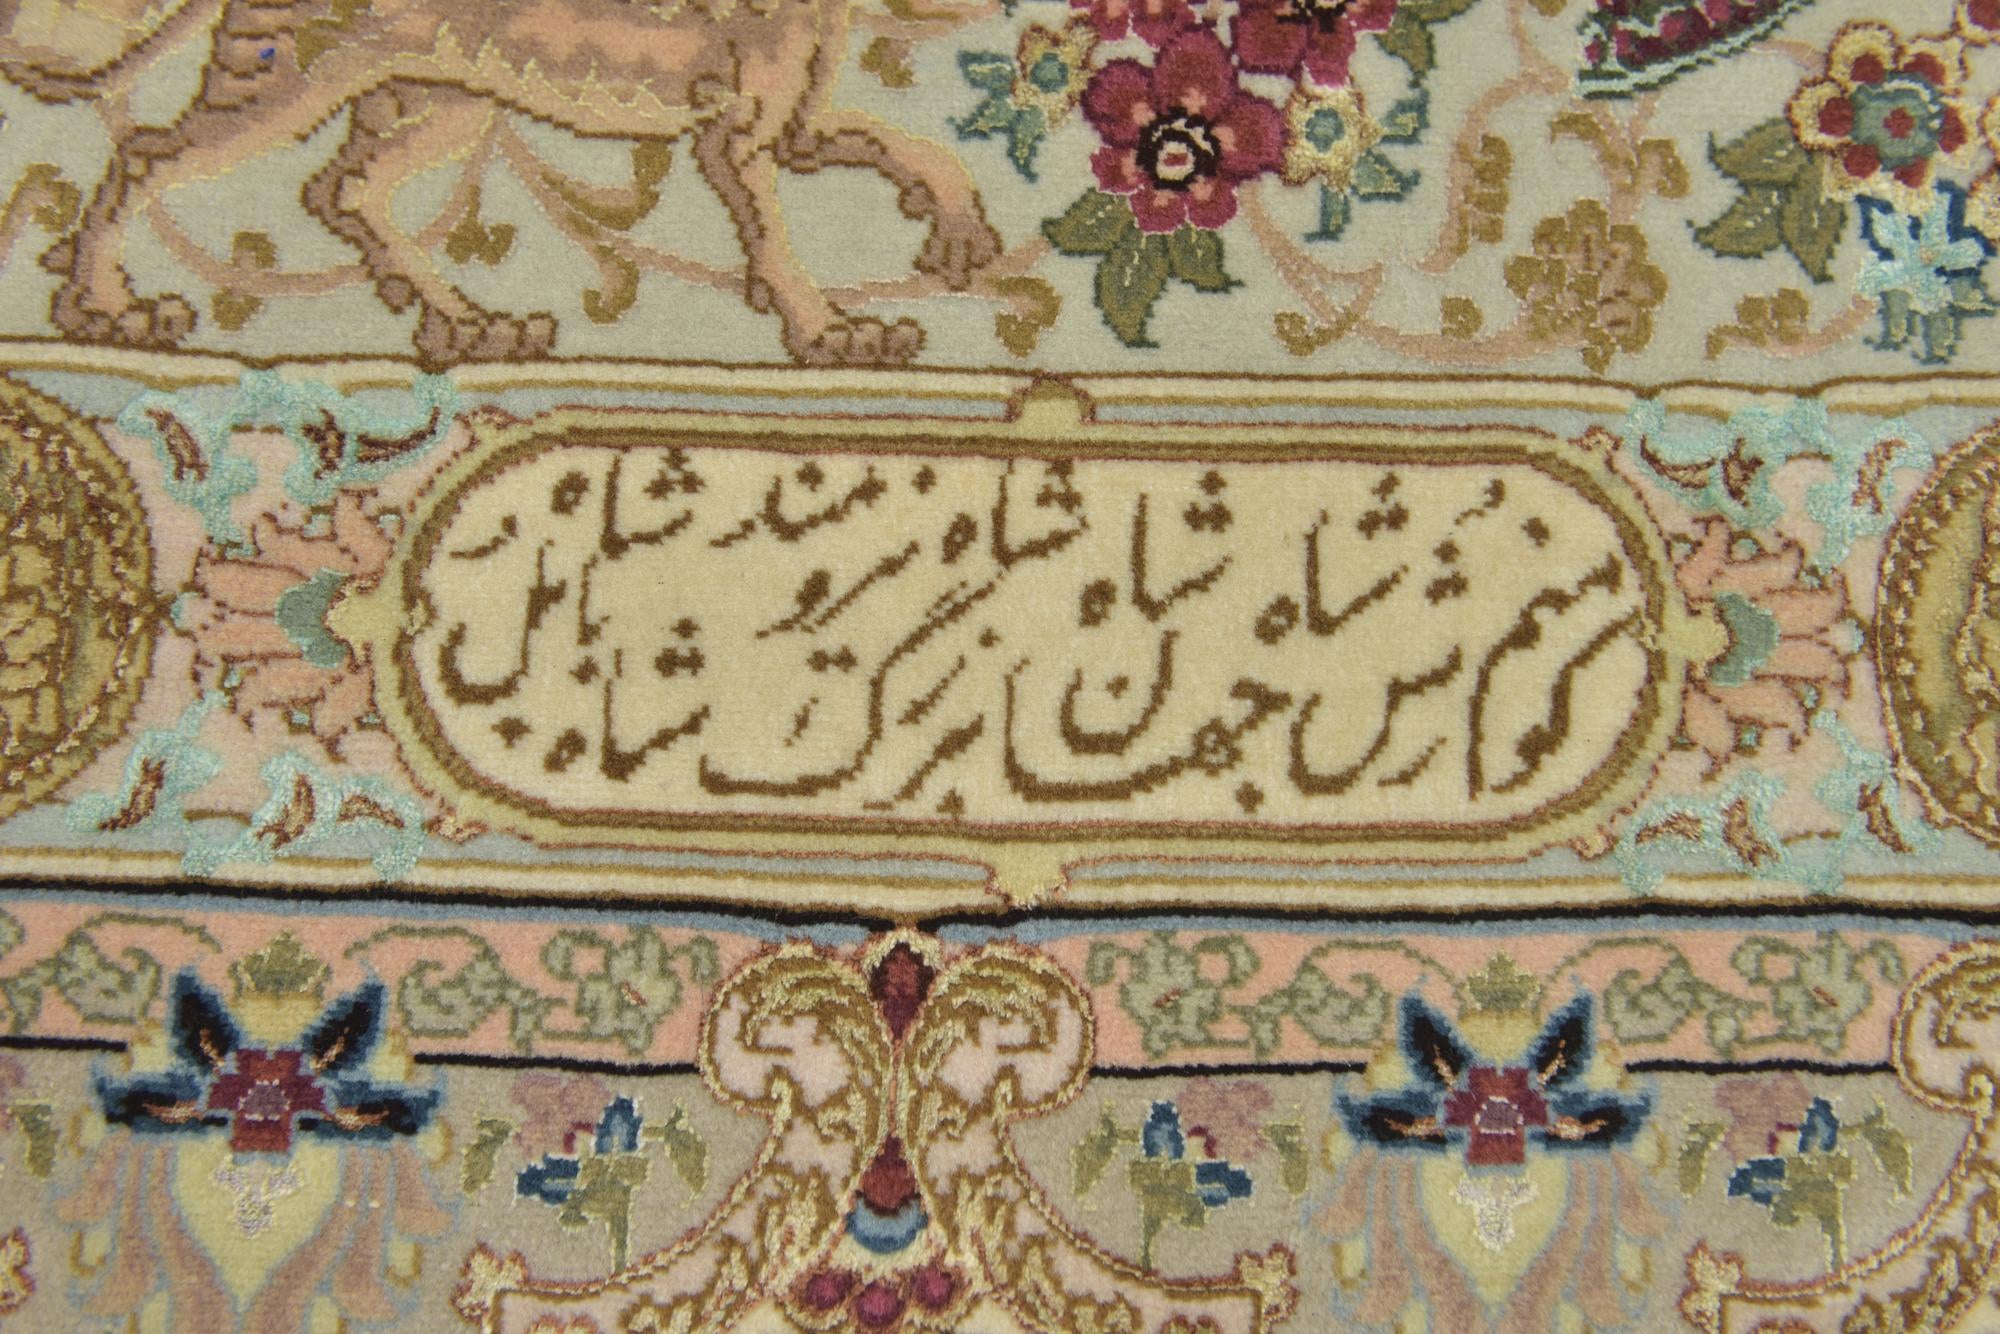 منم کورش شاه جهان شاه بزرگ شاه نیرومند شاه بابل